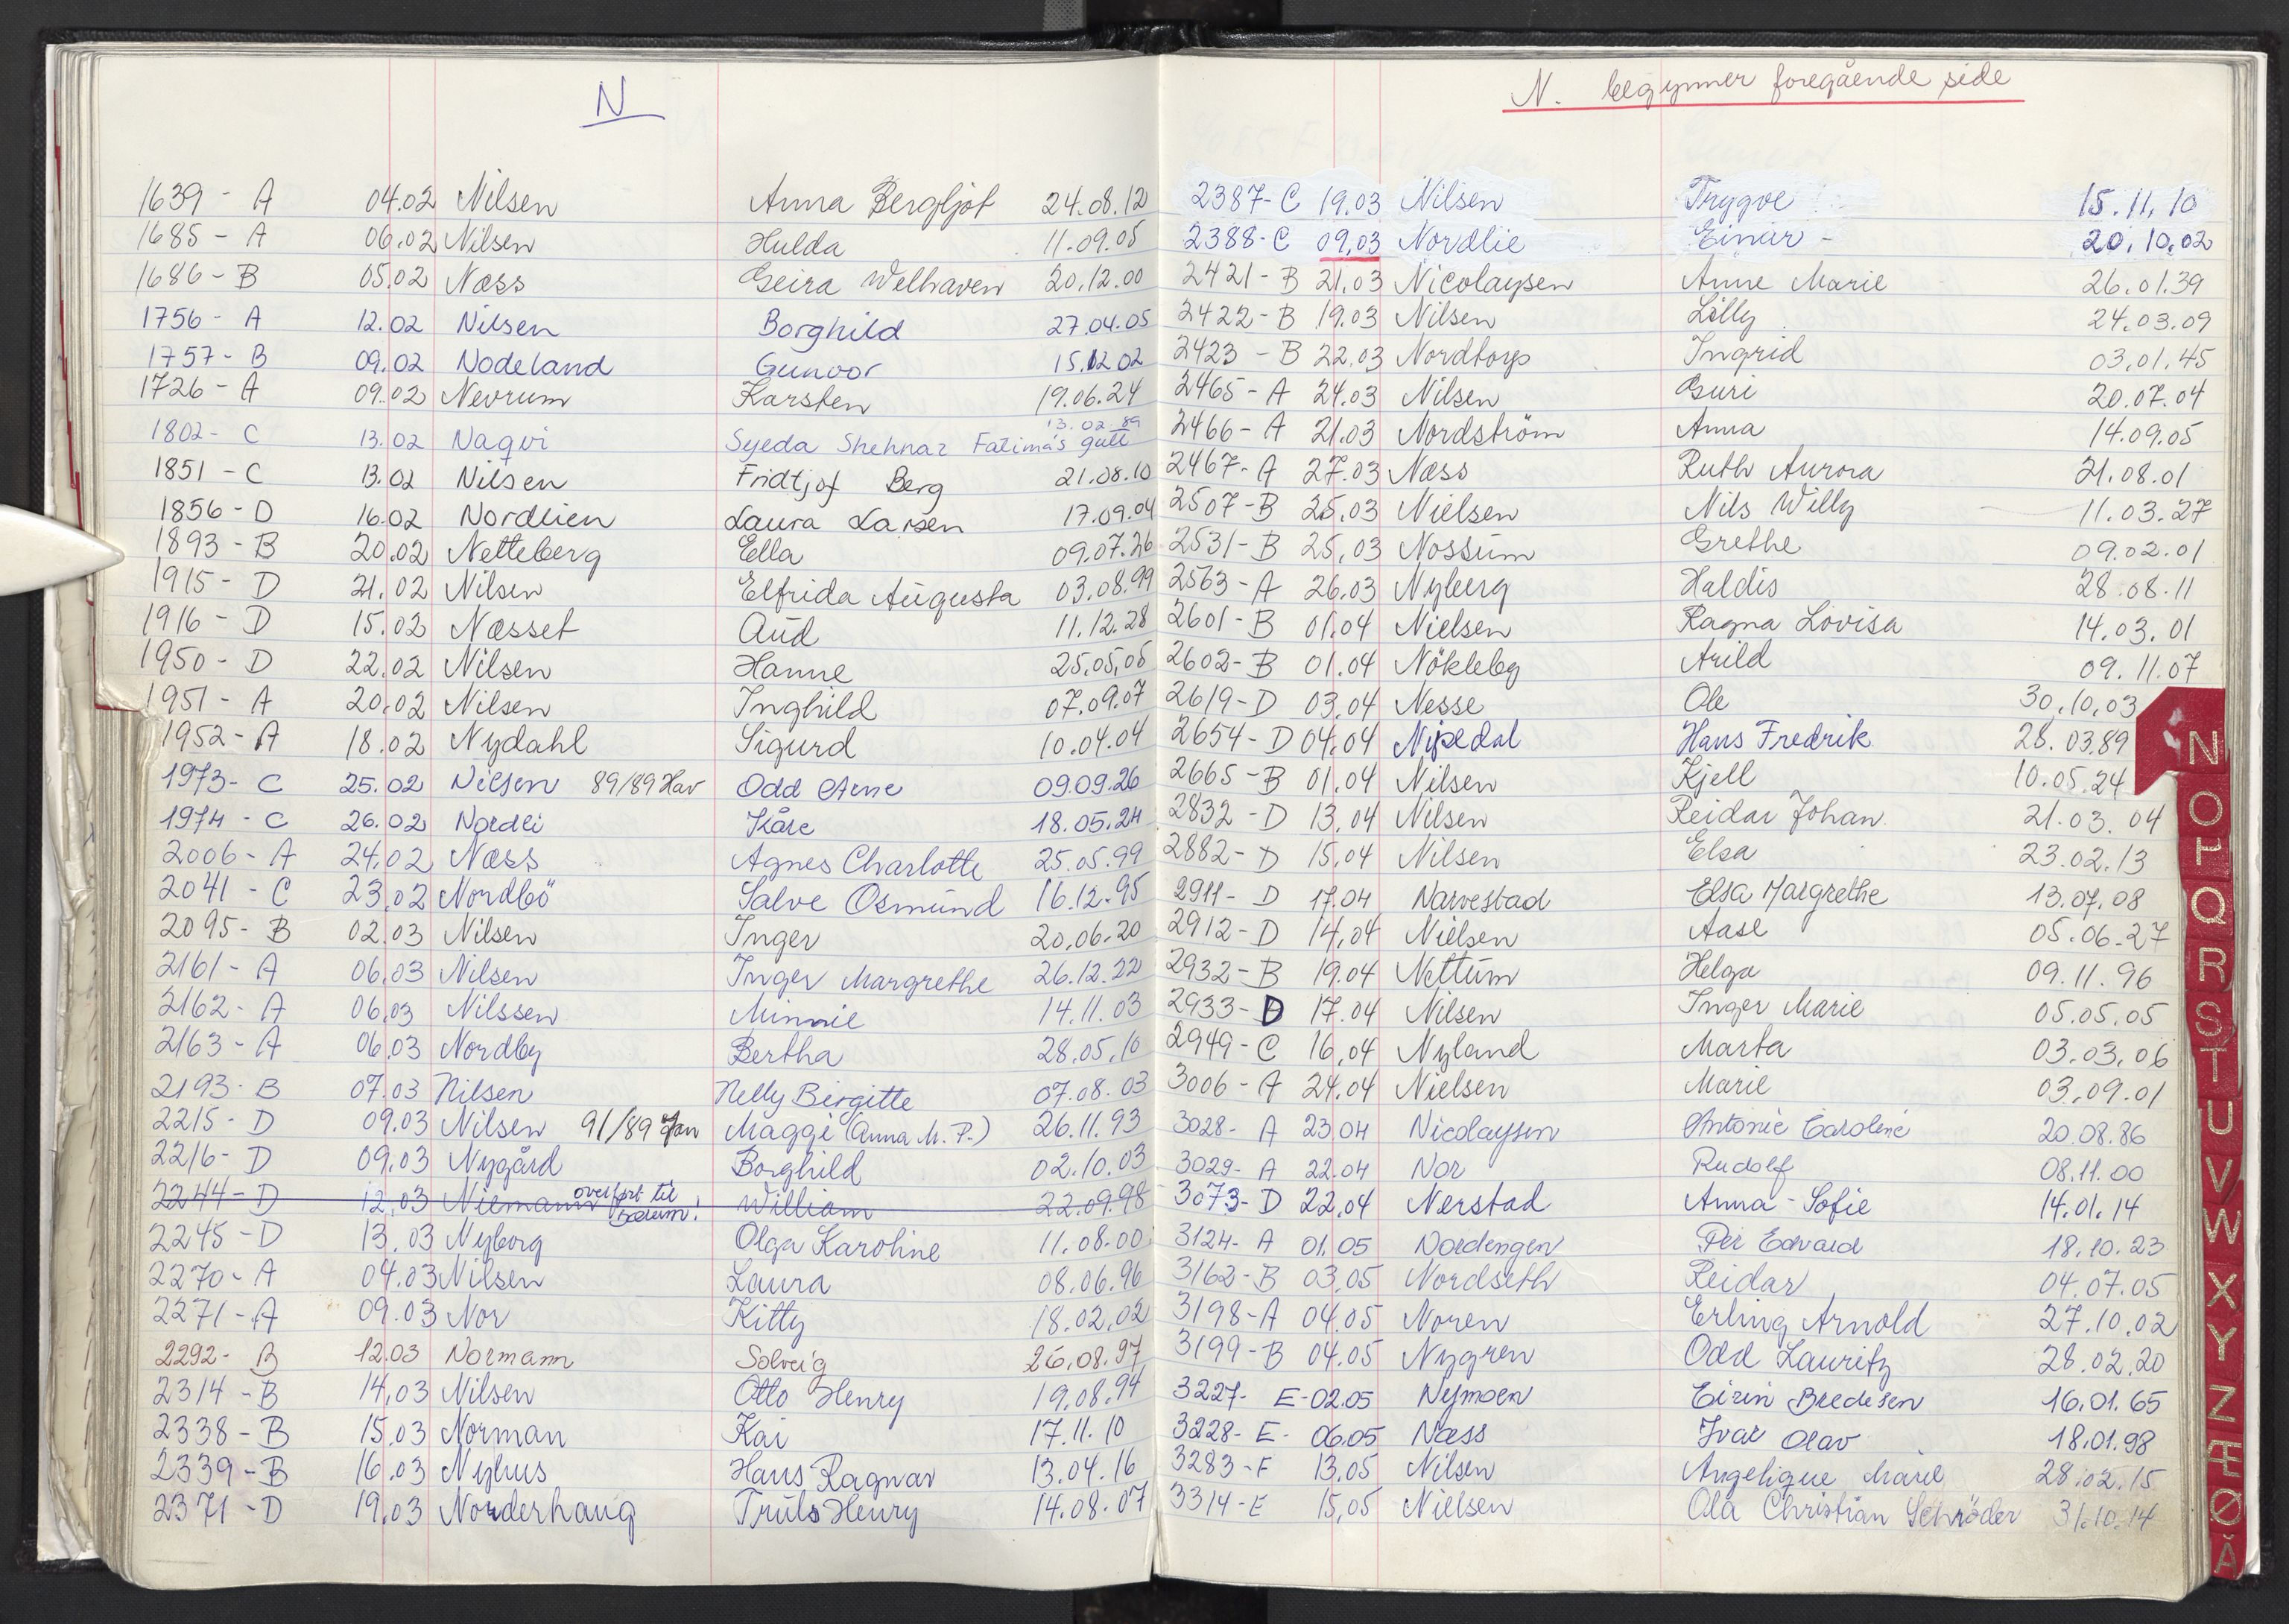 N
1639 - A 04.02 Nilsen Anna Bergljot 24.08.12
1685 - A 06.02 Nilsen Hulda 11.09.05
1686 - B 05.02 Næss Geira Welhaven 20.12.00
1756 - A 12.02 Nilsen Borghild 27.04.05
1757 - B 09.02 Nodeland Gunvor 15.12.02
1726 - A 09.02 Nevrum Karsten 19.06.24
1802 - C 13.02 Naqvi Syeda Shehnaz Fatima's gutt 13.02.89
1851 - C 13.02 Nilsen Fridtjof Berg 21.08.10
1856 - D 16.02 Nordlien Laura Larsen 17.09.04
1893 - B 20.02 Netteberg Ella 09.07.26
1915 - D 21.02 Nilsen Elfrida Augusta 03.08.99
1916 - D 15.02 Næsset Aud 11.12.28
1950 - D 22.02 Nilsen Hanne 25.05.05
1951 - A 20.02 Nilsen Inghild 07.09.07
1952 - A 18.02 Nydahl Sigurd 10.04.04
1973 - C 25.02 Nilsen 89/89 Hav Odd Arne 09.09.26
1974 - C 26.02 Nordli Kåre 18.05.24
2006 - A 24.02 Næss Agnes Charlotte 25.05.99
2041 - C 23.02 Nordbö Salve Osmund 16.12.95
2095 - B 02.03 Nilsen Inger 20.06.20
2161 - A 06.03 Nilsen Inger Margrethe 26.12.22
2162 - A 06.03 Nilssen Minnie 14.11.03
2163 - A 06.03 Nordby Bertha 28.05.10
2193 - B 07.03 Nilsen Nelly Birgitte 07.08.03
2215 - D 09.03 Nilsen 91/89 Jan Maggi (Anna M. P.) 26.11.93
2216 - D 09.03 Nygård Borghild 02.10.03
2244 - D 12.03 Niemann overført til Bærum! William 22.09.98
2245 - D 13.03 Nyborg Olga Karoline 11.08.00
2270 - A 04.03 Nilsen Laura 08.06.96
2271 - A 09.03 Nor Kitty 18.02.02
2292 - B 12.03 Normann Solveig 26.08.97
2314 - B 14.03 Nilsen Otto Henry 19.08.94
2338 - B 15.03 Norman Kai 17.11.10
2339 - B 16.03 Nyhus Hans Ragnar 13.04.16
2371 - D 19.03 Norderhaug Truls Henry 14.08.07
N. begynner foregående side
2387 - C 19.03 Nilsen Trygve 15.11.10
2388 - C 09.03 Nordlie Einar - 20.10.02
2421 - B 21.03 Nicolaysen Anne Marie 26.01.39
2422 - B 19.03 Nilsen Lilly 24.03.09
2423 - B 22.03 Nordtorp Ingrid 03.01.45
2465 - A 24.03 Nilsen Guri 20.07.04
2466 - A 21.03 Nordström Anna 14.09.05
2467 - A 27.03 Næss Ruth Aurora 21.08.01
2507 - B 25.03 Nielsen Nils Willy 11.03.27
2531 - B 25.03 Nossum Grethe 09.02.01
2563 - A 26.03 Nyberg Haldis 28.08.11
2601 - B 01.04 Nielsen Ragna Lovisa 14.03.01
2602 - B 01.04 Nökleby Arild 09.11.07
2619 - D 03.04 Nesse Ole 30.10.03
2654 - D 04.04 Nipedal Hans Fredrik 28.03.89
2665 - B 01.04 Nilsen Kjell 10.05.24
2832 - D 13.04 Nilsen Reidar Johan 21.03.04
2882 - D 15.04 Nilsen Elsa 23.02.13
2911 - D 17.04 Narvestad Elsa Margrethe 13.07.08
2912 - D 14.04 Nielsen Aase 05.06.27
2932 - B 19.04 Nettum Helga 09.11.96
2933 - D 17.04 Nilsen Inger Marie 05.05.05
2949 - C 16.04 Nyland Marta 03.03.06
3006 - A 24.04 Nielsen Marie 03.09.01
3028 - A 23.04 Nicolaysen Antonie Caroline 20.08.86
3029 - A 22.04 Nor Rudolf 08.11.00
3073 - D 22.04 Nerstad Anna-Sofie 14.01.14
3124 - A 01.05 Nordengen Per Edvard 18.10.23
3162 - B 03.05 Nordseth Reidar 04.07.05
3198 - A 04.05 Noren Erling Arnold 27.10.02
3199 - B 04.05 Nygren Odd Lauritz 28.02.20
3227 - E - 02.05 Nymoen Eirin Bredesen 16.01.65
3228 - E - 06.05 Næss Ivar Olav 18.01.98
3283 - F 13.05 Nilsen Angelique Marie 28.02.15
3314 - E 15.05 Nielsen Ola Christian Schrøder 31.10.14
N
O
P
Q
R
S
T
U
V
W
X
Y
Z
Æ
Ø
Å